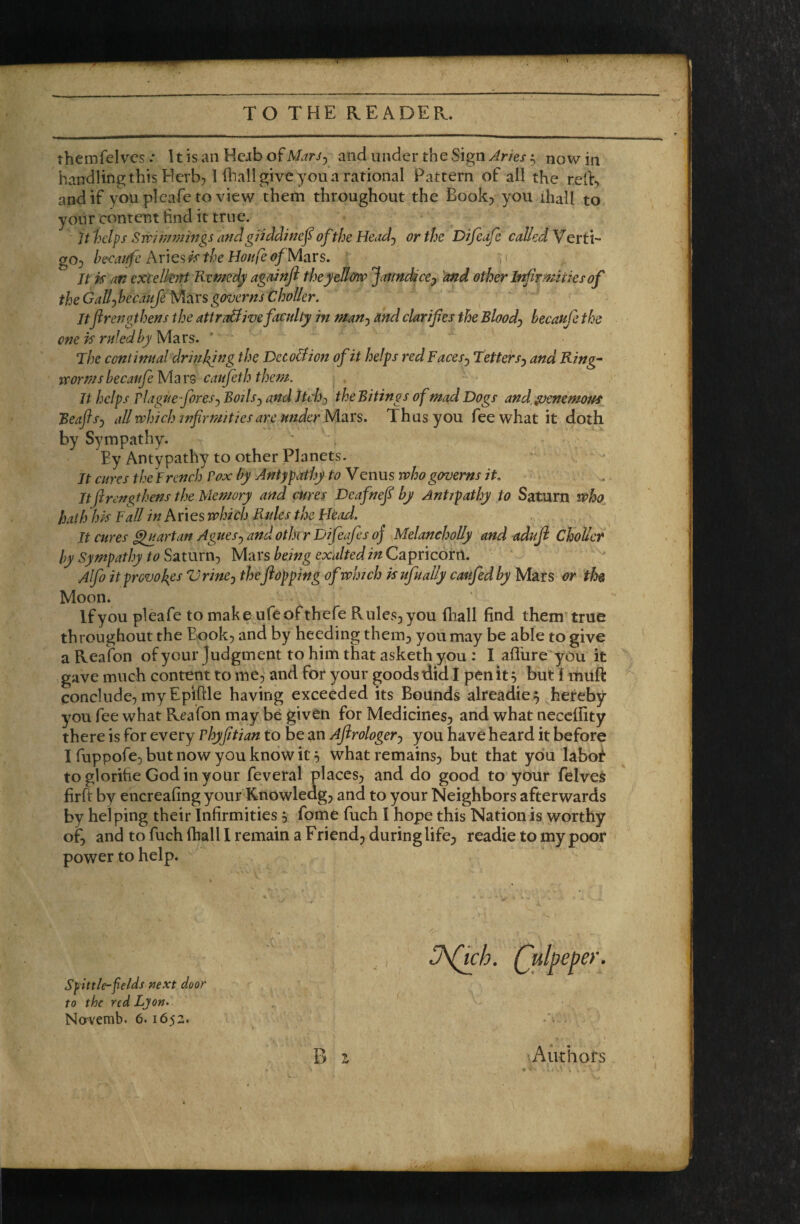 TO THE READER.
themſelves: It is an Herb of Mars, and under the Sign Aries; now in
handling this Herb, I ſhall give you a rational Pattern of all the reſt,
and if you pleaſe to view them throughout the Book, you ſhall to
your content find it true.
It helps Swimmings and giddineſs of the Head, or the Diſeaſe called Verti-
go, becauſe Aries is the Houſe of Mars.
It is an excellent Remedy againſt the yellow Jaundice, and other Infirmities of
the Gall, becauſe Mars governs Choller.
It ſtrengthens the attractive faculty in man, and clarifies the Blood, becauſe the
one is ruled by Mars.
The continual drinking the Decoction of it helps red Faces, Tetters, and Ring-
worms becauſe Mars cauſeth them.
It helps Plague-ſores, Boils, and Itch, the Bitings of mad Dogs and venemous
Beaſts, all which infirmities are under Mars. Thus you ſee what it doth
by Sympathy.
By Antypathy to other Planets.
It cures the French Pox by Antypathy to Venus who governs it.
It ſtrengthens the Memory and cures Deafneſs by Antipathy to Saturn who
hath his Fall in Aries which Rules the Head.
It cures Quartan Agues, and other Diſeaſes of Melancholly and aduſt Choller
by Sympathy to Saturn, Mars being exalted in Capricorn.
Alſo it provokes Urine, the ſtopping of which is uſually cauſed by Mars or the
Moon.
If you pleaſe to make uſe of theſe Rules, you ſhall find them true
throughout the Book, and by heeding them, you may be able to give
a Reaſon of your Judgment to him that asketh you: I aſſure you it
gave much content to me, and for your goods did I pen it; but I muſt
conclude, my Epiſtle having exceeded its Bounds alreadie; hereby
you ſee what Reaſon may be given for Medicines, and what neceſſity
there is for every Phyſitian to be an Aſtrologer, you have heard it before
I ſuppoſe, but now you know it; what remains, but that you labor
to glorifie God in your ſeveral places, and do good to your ſelves
firſt by encreaſing your Knowledg, and to your Neighbors afterwards
by helping their Infirmities; ſome ſuch I hope this Nation is worthy
of, and to ſuch ſhall I remain a Friend, during life, readie to my poor
power to help.
Nich. Culpeper.
Spittle-fields next door
to the red Lyon.
Novemb. 6. 1652.
B 2 Authors